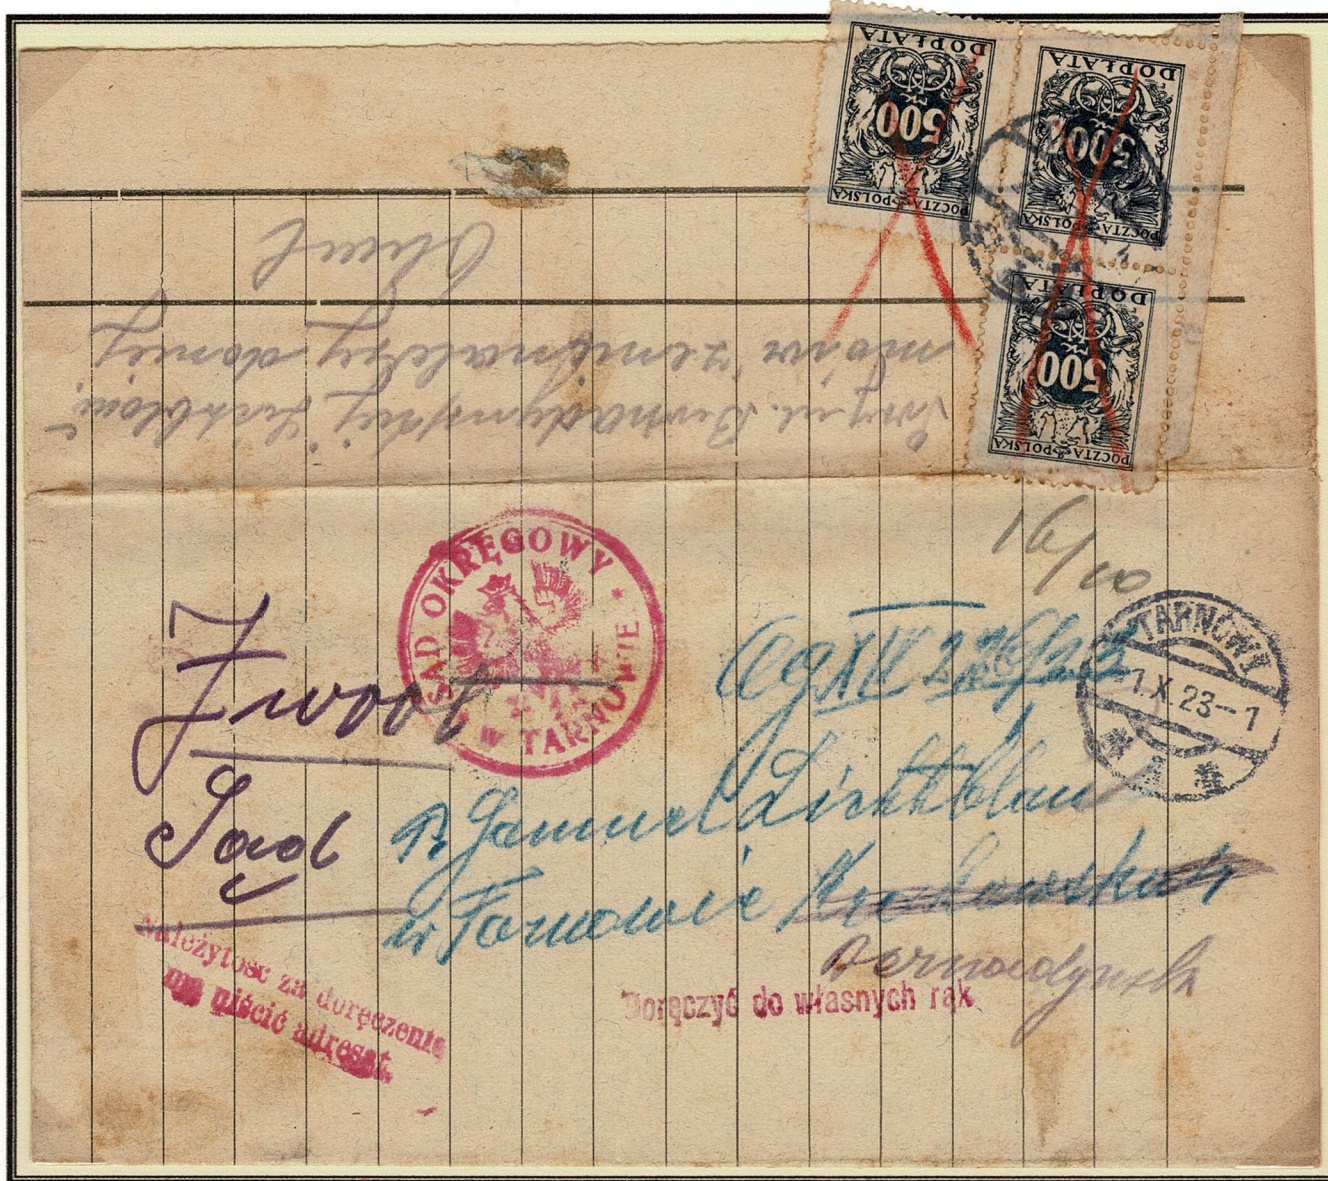 DOPŁATA
500
POCZTA POLSKA
DOPŁATA
500
POCZTA POLSKA
DOPŁATA
500
POCZTA POLSKA
przy ul. Bernadyńskiej
należy
16/10
SĄD OKRĘGOWY
W TARNOWIE
TARNÓW 1
1.X.23-1
Zwrot
Sąd
Cg XII
P. Samuel Lichtblau
w Tarnowie
Bernadyńska
Należytość za doręczenie
ma uiścić adresat.
Doręczyć do własnych rąk